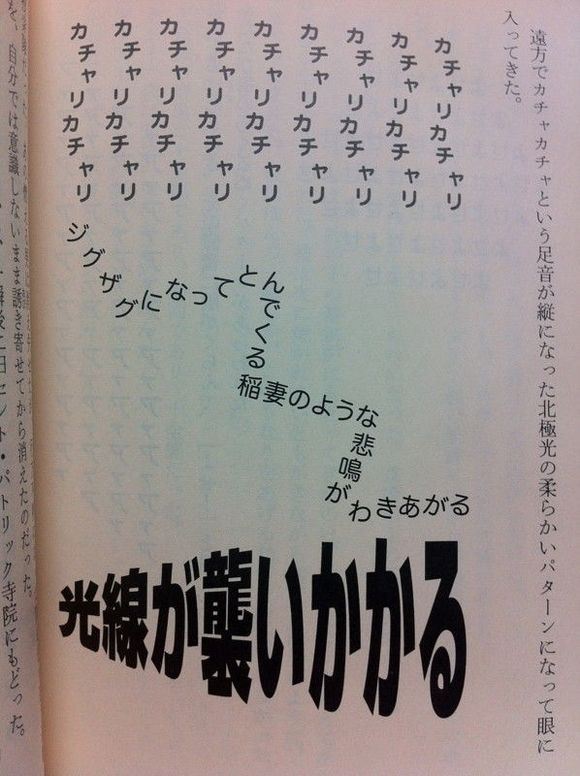 遠方でカチャカチャという足音が縦になった北極光の柔らかいパターンになって眼に
入ってきた。
カチャリカチャリ
カチャリカチャリ
カチャリカチャリ
カチャリカチャリ
カチャリカチャリ
カチャリカチャリ
カチャリカチャリ
カチャリカチャリ
カチャリカチャリ
ジグザグになってとんでくる稲妻のような悲鳴がわきあがる
光線が襲いかかる
自分では意識しないまま誘き寄せてから消えたのだった。
セント・パトリック寺院にもどった。